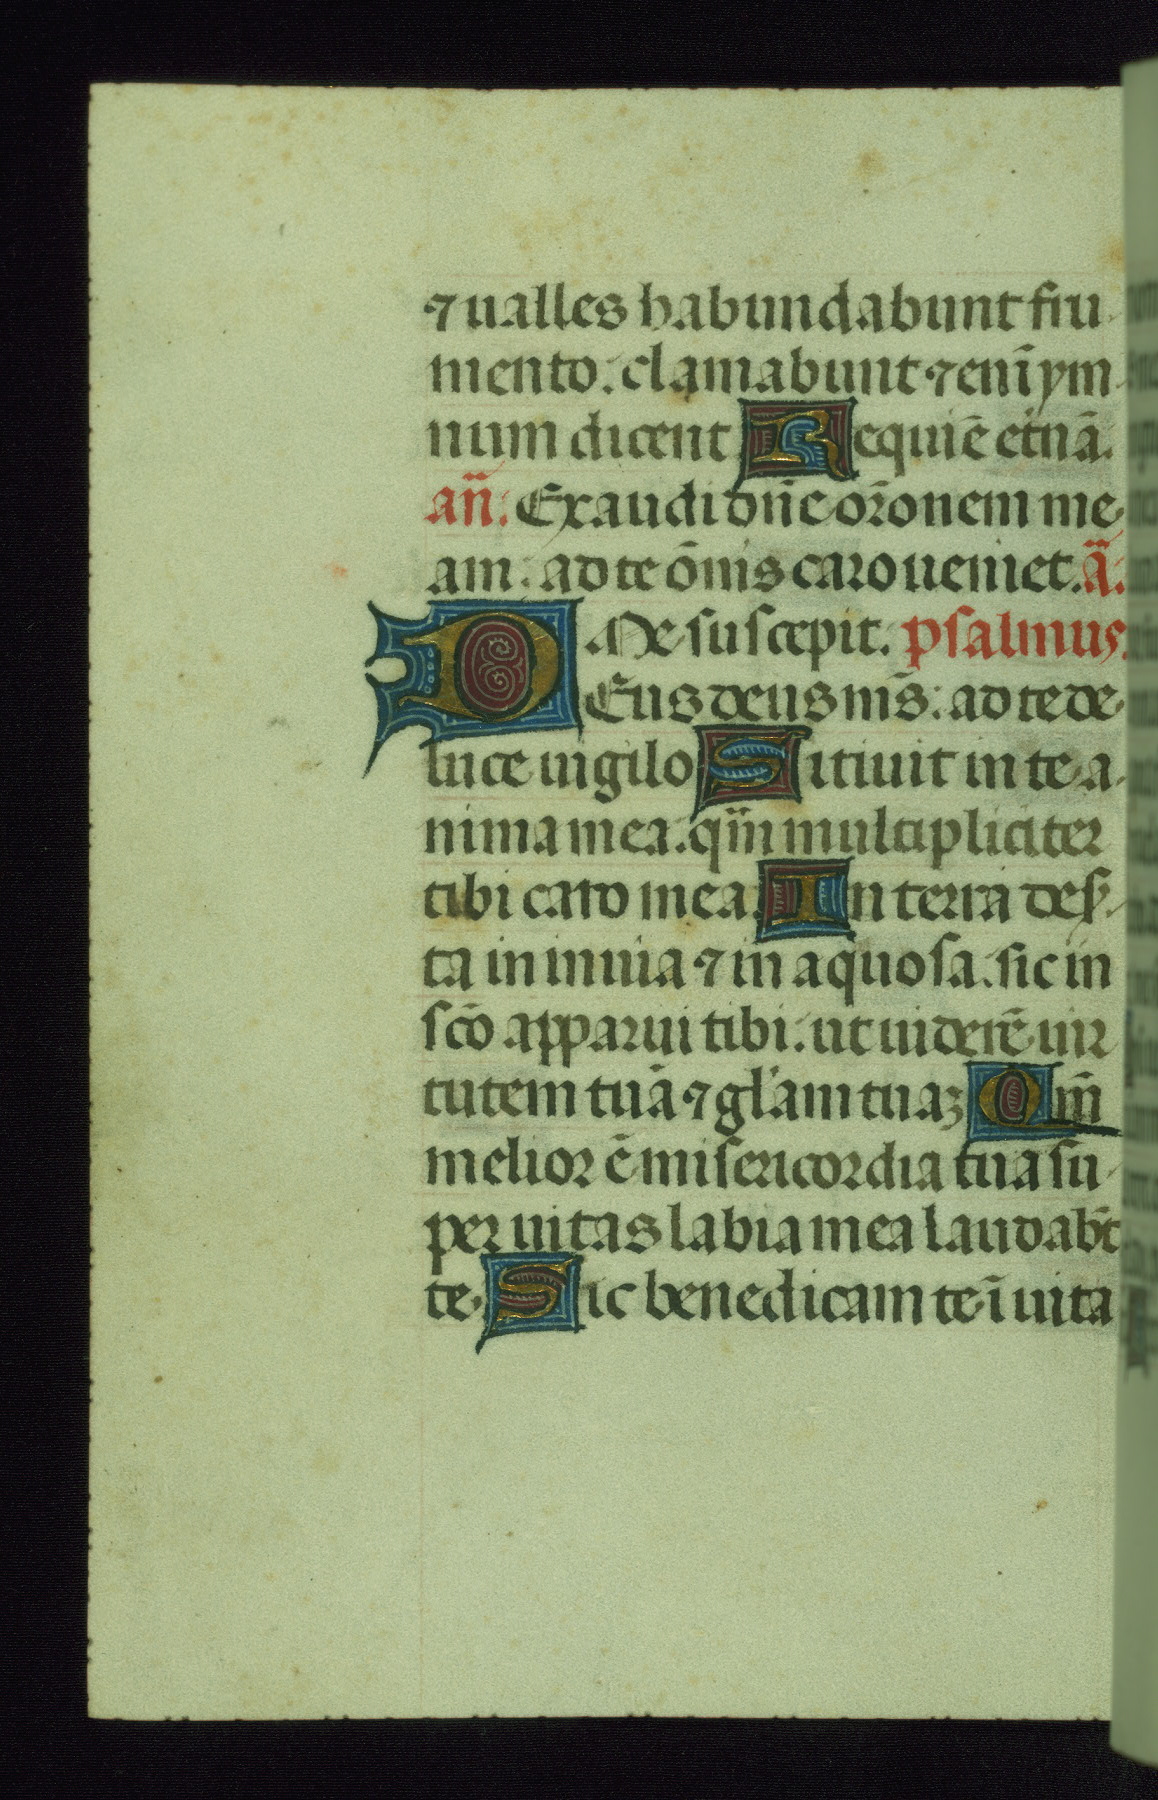 ⁊ ualles habundabunt fru
mento. clamabunt ⁊ enī ym
num dicent Requiē et̄nā.
añ. Exaudi dñe or̄onem me
am: ad te ōnis caro ueniet. ā.
Me suscepit. psalmus.
DEus deus ms̄: ad te de
luce uigilo Sitiuit in te a
nima mea. qm̄ multipliciter
tibi caro mea. In terra des̄
ta in inuia ⁊ in aquosa. sic in
sc̄o apparui tibi. ut uiderē uir
tutem tuā ⁊ gl'am tuaꝫ Qm̄
melior ē misericordia tua su
per uitas labia mea laudab̄t
te. Sic benedicam te ī uita